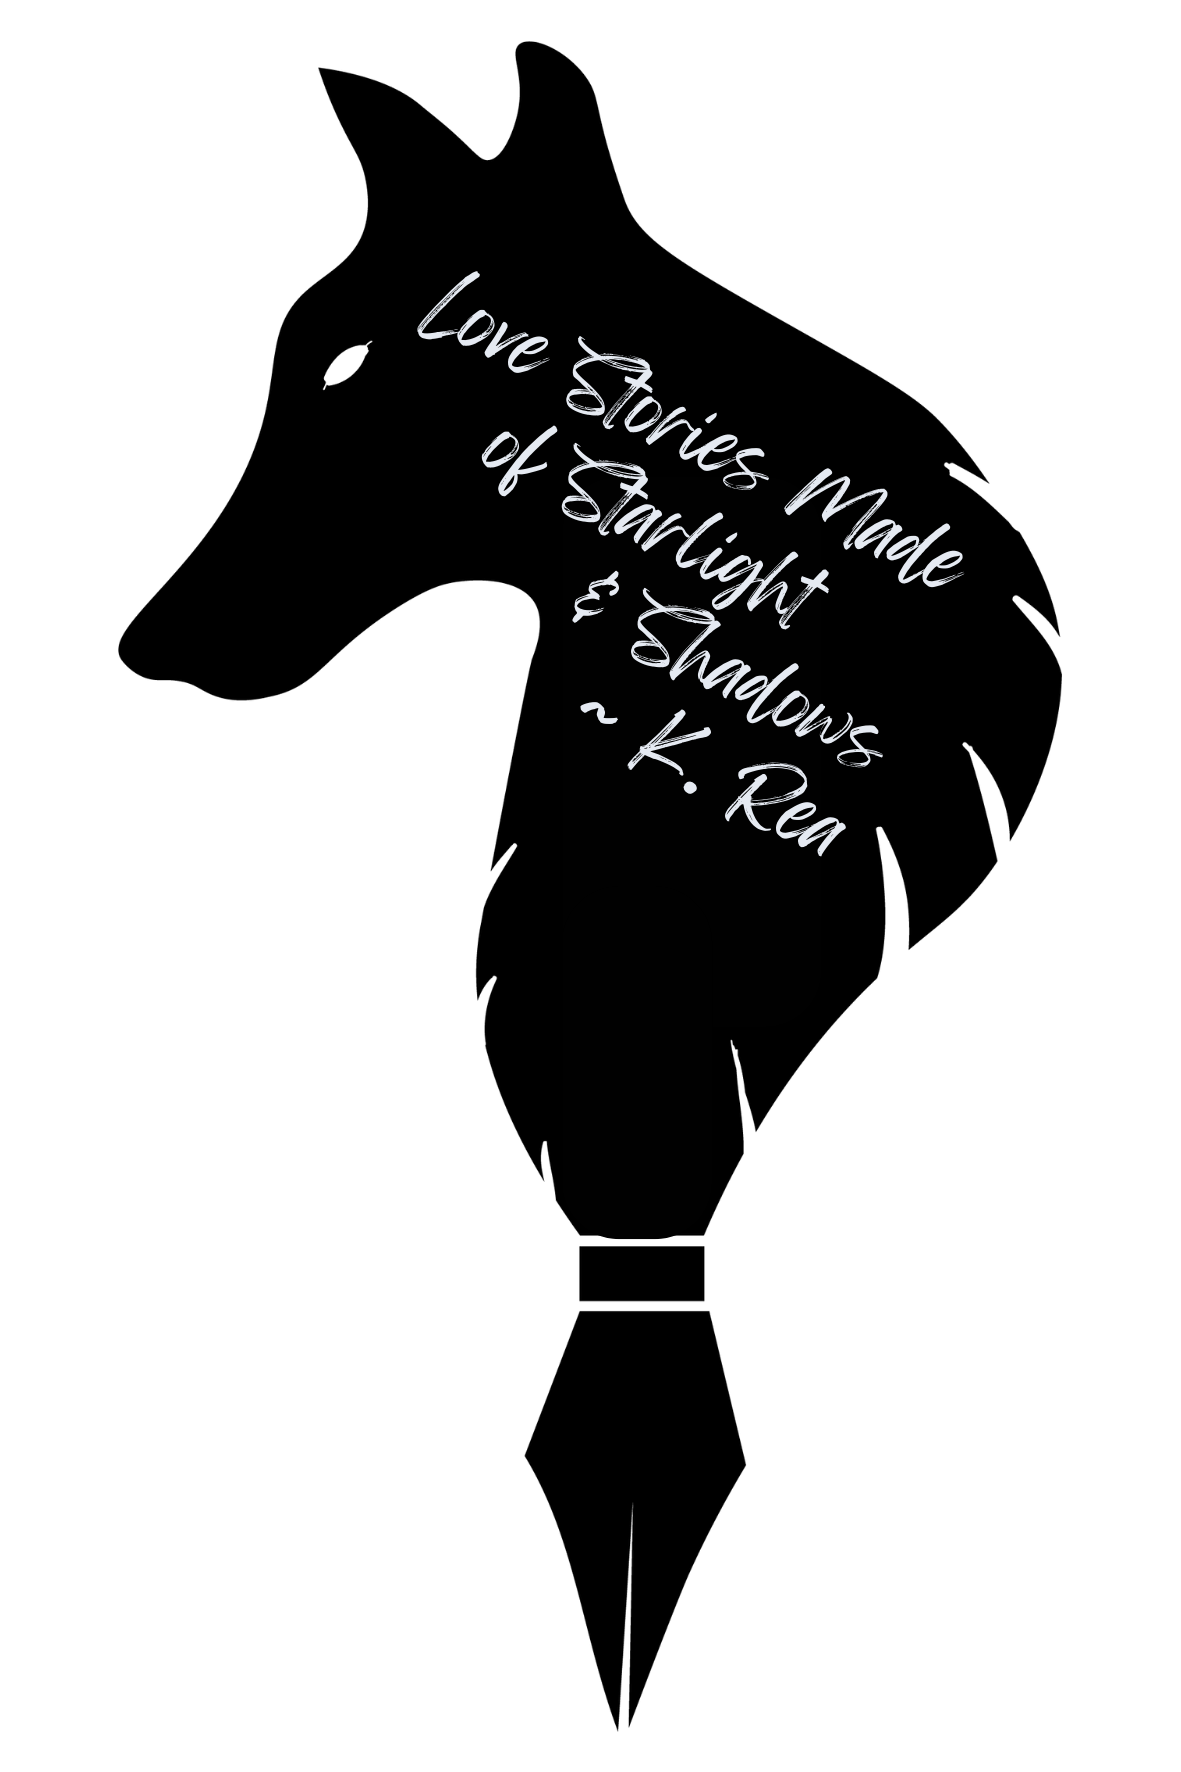 Love Stories Made
of Starlight
& Shadows
~ K. Rea